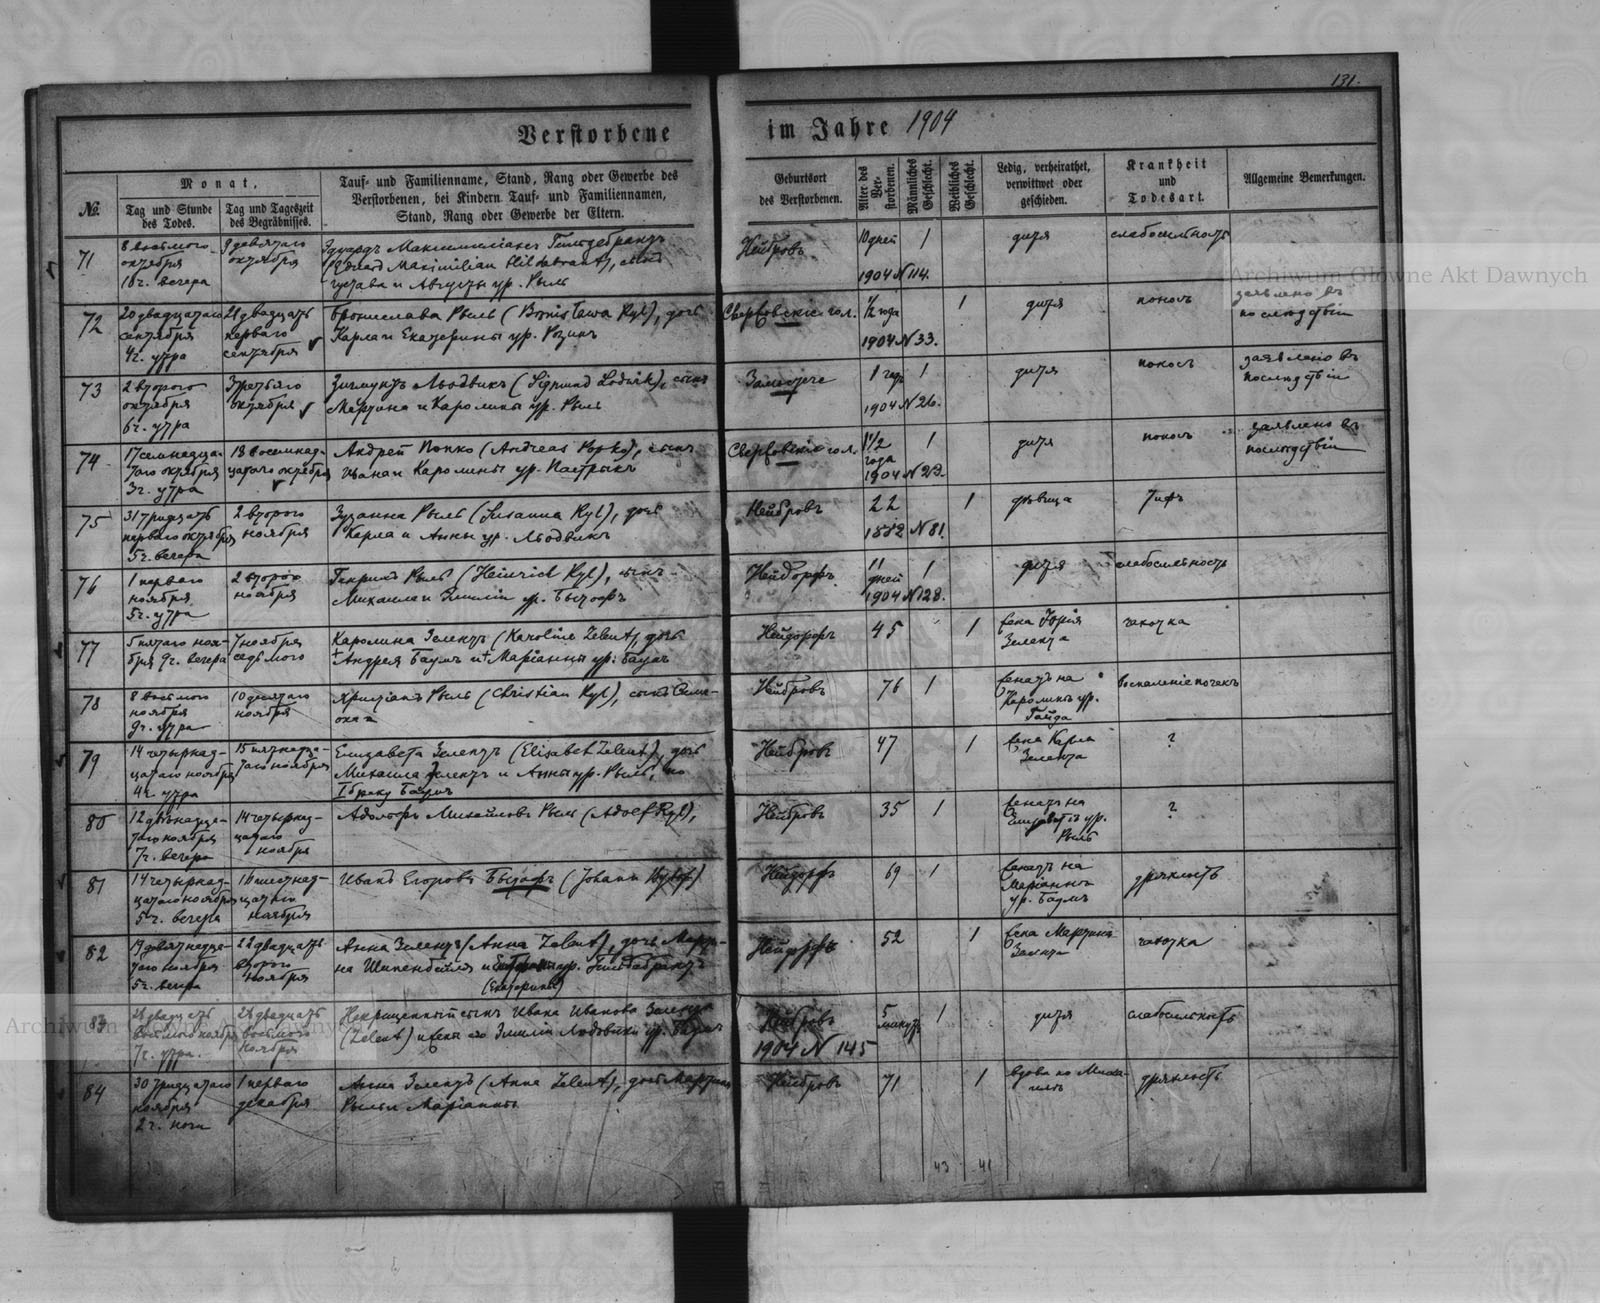 131.
Verstorbene im Jahre 1904
№.
Monat,
Tag und Stunde des Todes.
Tag und Tageszeit des Begräbnisses.
Tauf- und Familienname, Stand, Rang oder Gewerbe des
Verstorbenen, bei Kindern Tauf- und Familiennamen,
Stand, Rang oder Gewerbe der Eltern.
Geburtsort
des Verstorbenen.
Alter des Ver-
storbenen.
Männliches Geschlecht.
Weibliches Geschlecht.
Ledig, verheirathet,
verwittwet oder
geschieden.
Krankheit
und
Todesart.
Allgemeine Bemerkungen.
71
8 восьмого
октября
10 ч. вечера
9 девятаго
октября
Эдуардъ Максимилианъ Гильдебрандъ
(Eduard Maximilian Hildebrant), сынъ
Густава и Августы ур. Рыль
Нейбровъ
10 дней
1904 N 114.
1
дитя
слабосильность
72
20 двадцатаго
сентября
4 ч. утра
21 двадцать
перваго
сентября
Бронислава Рыль (Bronisława Ryl), дочь
Карла и Екатерины ур.
гол.
1/2 года
1904 N 33.
1
дитя
поносъ
заявлено въ
послѣдствіи
73
2 второго
октября
6 ч. утра
3 третьяго
октября
Зигмунтъ Льодвикъ (Sigmund Lodwik), сынъ
Мартина и Каролины ур. Рыль
Замостече
1 годъ
1904 N 26.
1
дитя
поносъ
заявлено въ
послѣдствіи
74
17 семнадца-
таго октября
3 ч. утра
18 восемнад-
цатаго октября
Андрей Попко (Andreas Popko), сынъ
Ивана и Каролины ур. Пастрыкъ
гол.
1 1/2
года
1904 N 23.
1
дитя
поносъ
заявлено въ
послѣдствіи
75
31 тридцать
перваго октября
5 ч. вечера
2 второго
ноября
Зузанна Рыль (Susanna Ryl), дочь
Карла и Анны ур. Льодвикъ
Нейбровъ
22
1882 N 81.
1
дѣвица
тифъ
76
1 перваго
ноября
5 ч. утра
2 второго
ноября
Генрихъ Рыль (Heinrich Ryl), сынъ
Михаила и Эмиліи ур. Бытофъ
Нейдорфъ
11
дней
1904 N 128.
1
дитя
слабосильность
77
5 пятаго ноя-
бря 9 ч. вечера
7 ноября
седьмого
Каролина Зелентъ (Karoline Zelent), дочь
+ Андрея Баумъ и + Маріанны ур. Баумъ
Нейдорфъ
45
1
жена Юрія
Зелента
чахотка
78
8 восьмого
ноября
9 ч. утра
10 десятаго
ноября
Христіанъ Рыль (Christian Ryl), сынъ
Нейбровъ
76
1
женатъ на
Каролинѣ ур.
Гайда
воспаленіе почекъ
79
14 четырнад-
цатаго ноября
4 ч. утра
15 пятнадца-
таго ноября
Елизавета Зелентъ (Elisabet Zelent), дочь
Михаила Зелентъ и Анны ур. Рыль, по
I браку Баумъ
Нейбровъ
47
1
жена Карла
Зелента
?
80
12 двѣнадца-
таго ноября
7 ч. вечера
14 четырнад-
цатаго
ноября
Адольфъ Михайловъ Рыль (Adolf Ryl),
Нейбровъ
35
1
женатъ на
Елизаветѣ ур.
Рыль
?
81
14 четырнад-
цатаго ноября
5 ч. вечера
16 шестнад-
цатаго
ноября
Иванъ Егоровъ Бытофъ (Johann Bytof)
Нейдорфъ
69
1
женатъ на
Маріаннѣ
ур. Баумъ
дряхлость
82
19 девятнадца-
таго ноября
5 ч. вечера
22 двадцать
второго
ноября
Анна Зелентъ (Anna Zelent), дочь Марти-
на Шипенбейля и ур. Гильдебрантъ
(Екатерины)
Нейдорфъ
52
1
жена Мартина
Зелента
чахотка
83
28 двадцать
восьмого ноября
7 ч. утра.
28 двадцать
восьмого
ноября
Некрещенный сынъ Ивана Иванова Зелента
(Zelent) и жены его Эмиліи Людовики ур. Баумъ
Нейбровъ
1904 N 145
5
минутъ
1
дитя
слабосильность
84
30 тридцатаго
ноября
2 ч. ночи
1 перваго
декабря
Анна Зелентъ (Anna Zelent), дочь Мартина
Рыль и Маріанны
Нейбровъ
71
1
вдова по Миха-
илѣ
дряхлость
43 41
Archiwum Główne Akt Dawnych
Archiwum Główne Akt Dawnych